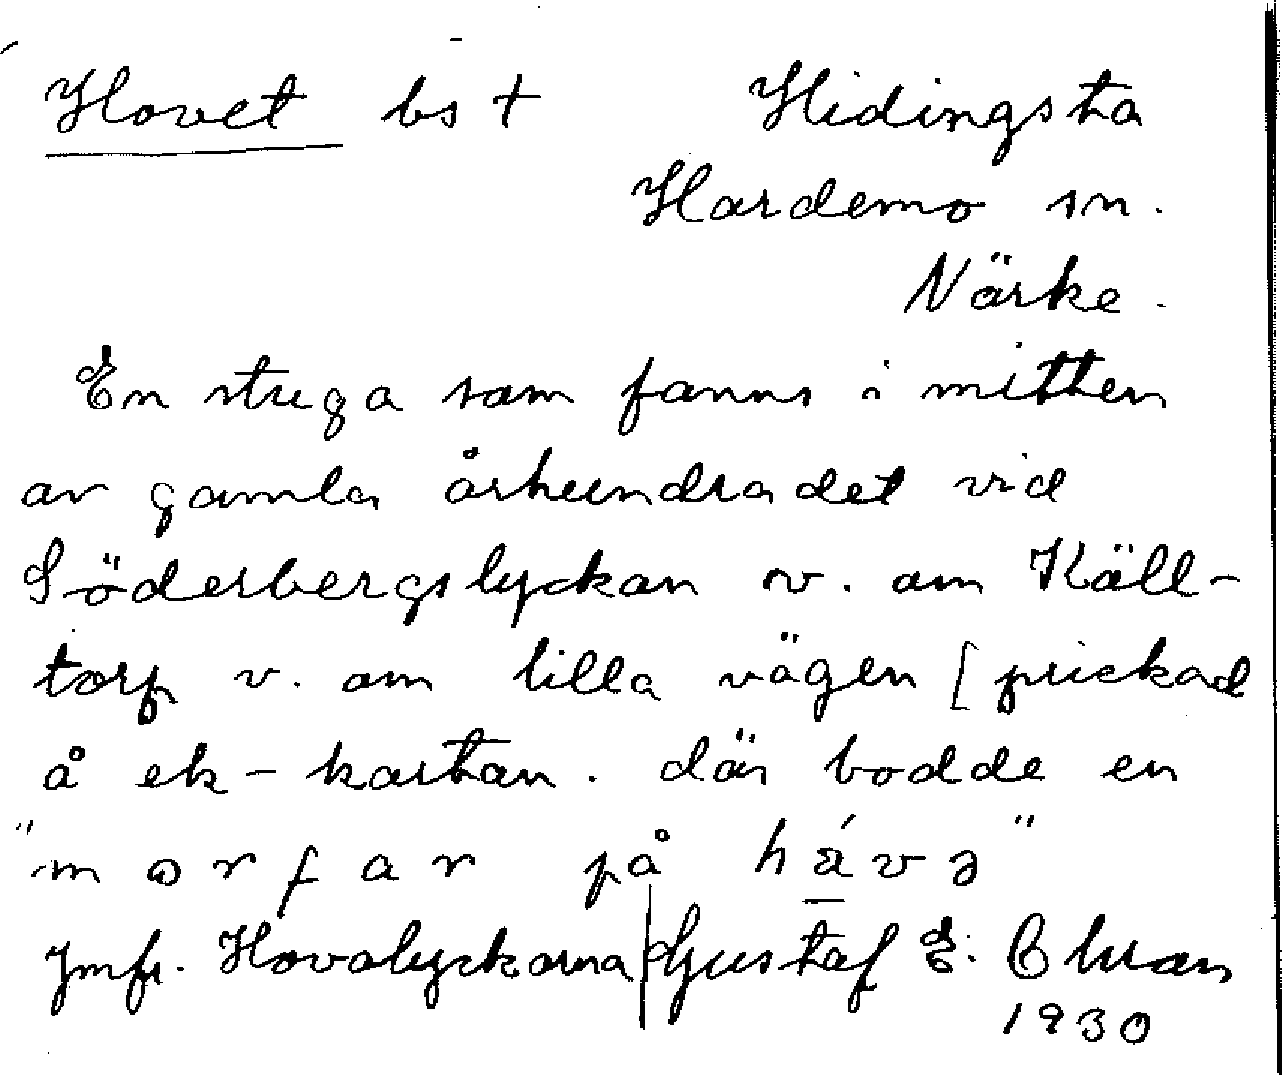 Hovet bs † Hidingsta
Hardemo sn.
Närke.
En stuga som fanns i mitten
av gamla århundradet vid
Söderbergslyckan v. om Käll-
torp v. om lilla vägen [prickad
å ek-kartan. där bodde en
"morfar på hávə"
Jmfr. Hovalyckorna Gustaf E.
1930